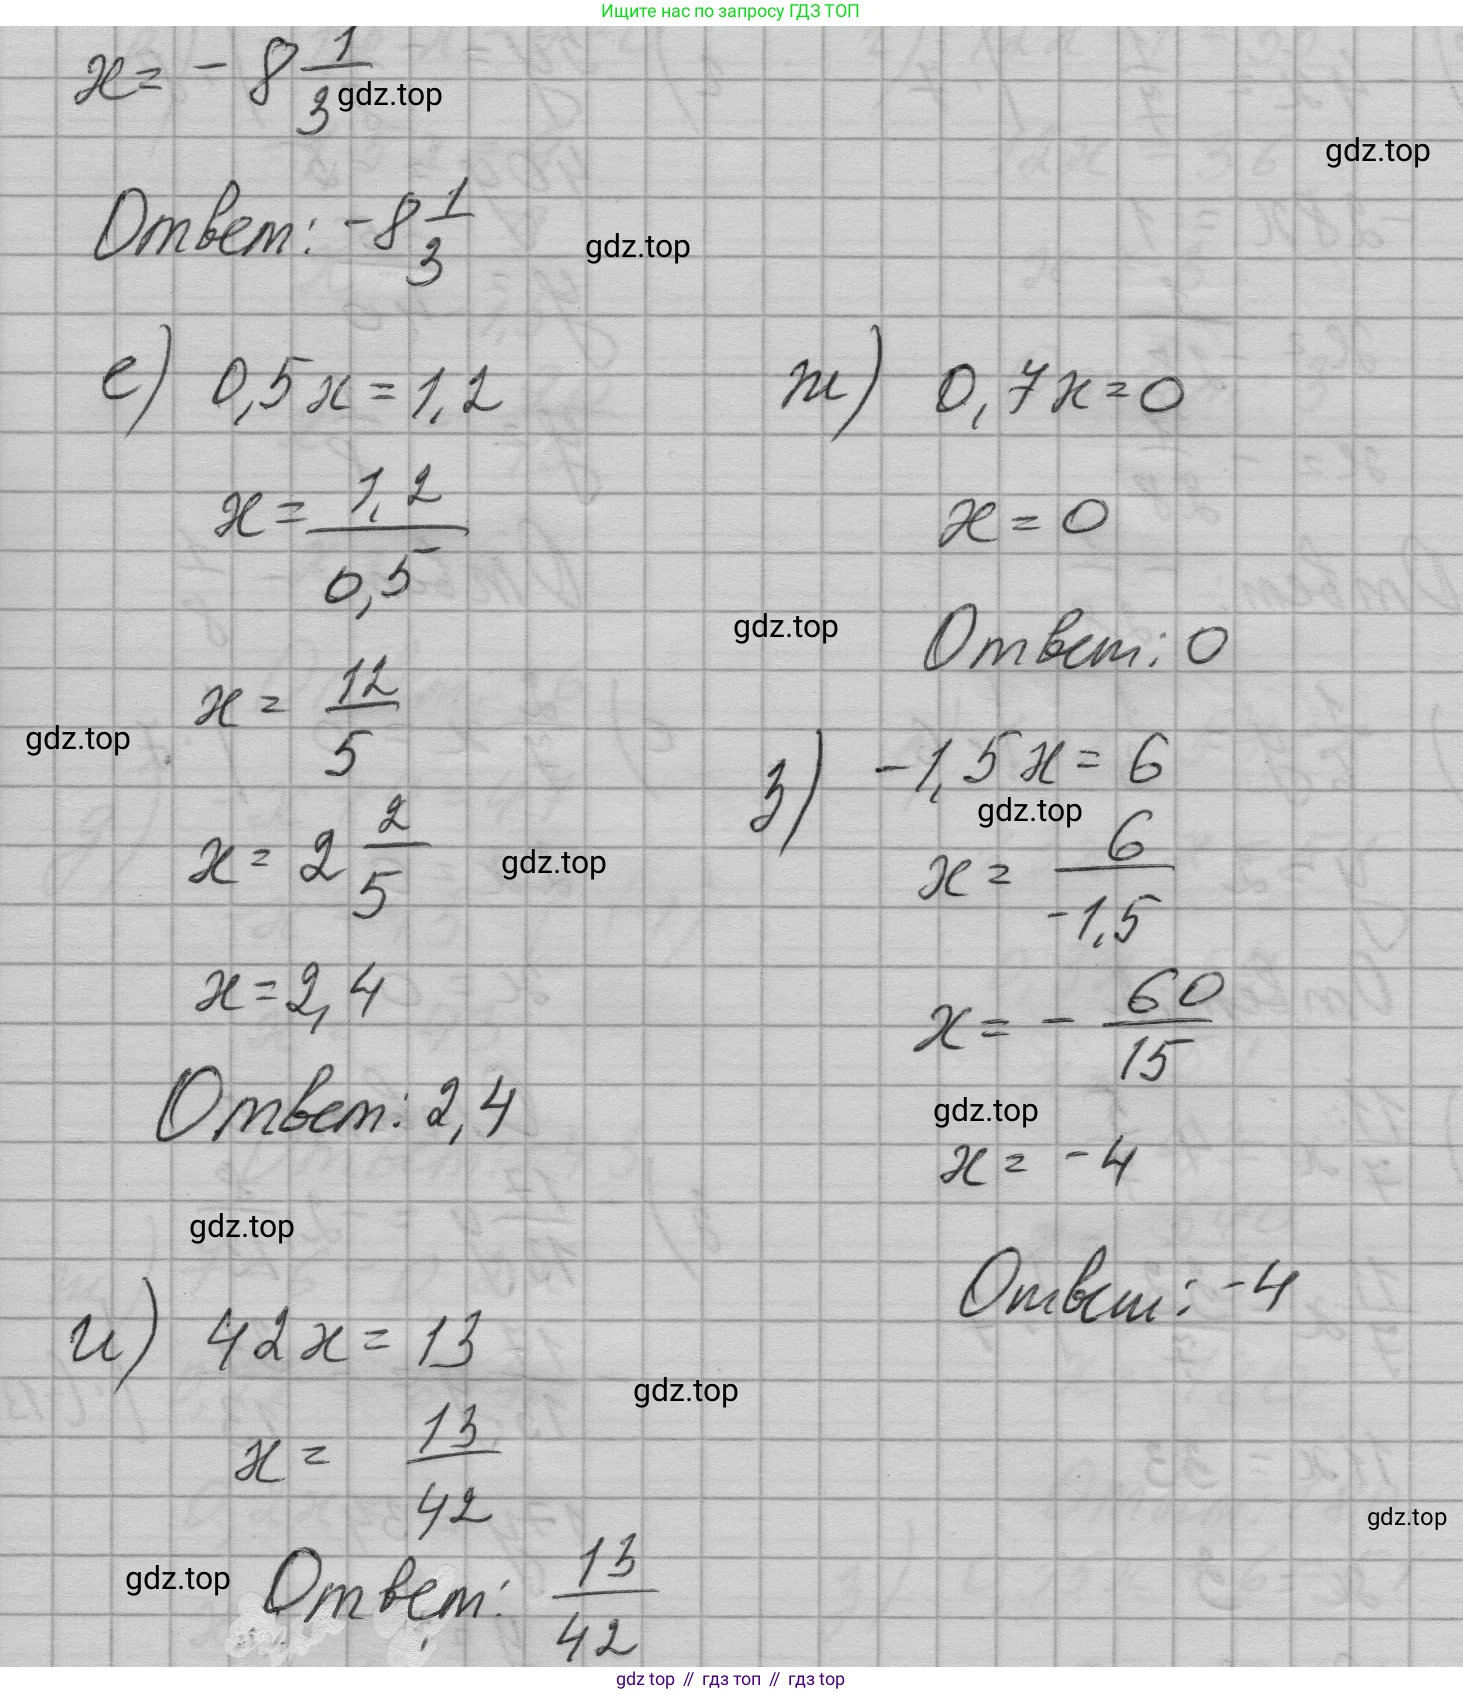 Ищите нас по запросу ГДЗ ТОП
x = - 8 1/3
gdz.top
gdz.top
Ответ: -8 1/3
gdz.top
е) 0,5x = 1,2
x = 1,2/0,5
x = 12/5
gdz.top
x = 2 2/5
gdz.top
x = 2,4
Ответ: 2,4
gdz.top
ж) 0,7x = 0
x = 0
gdz.top
Ответ: 0
з) -1,5x = 6
gdz.top
x = 6/-1,5
x = - 60/15
gdz.top
x = -4
Ответ: -4
и) 42x = 13
gdz.top
x = 13/42
gdz.top
gdz.top
Ответ: 13/42
gdz top // гдз топ // гдз top